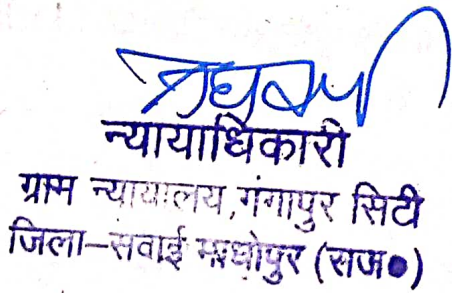 न्यायाधिकारी
ग्राम न्यायालय,गंगापुर सिटी
जिला–सवाई माधोपुर (राज०)